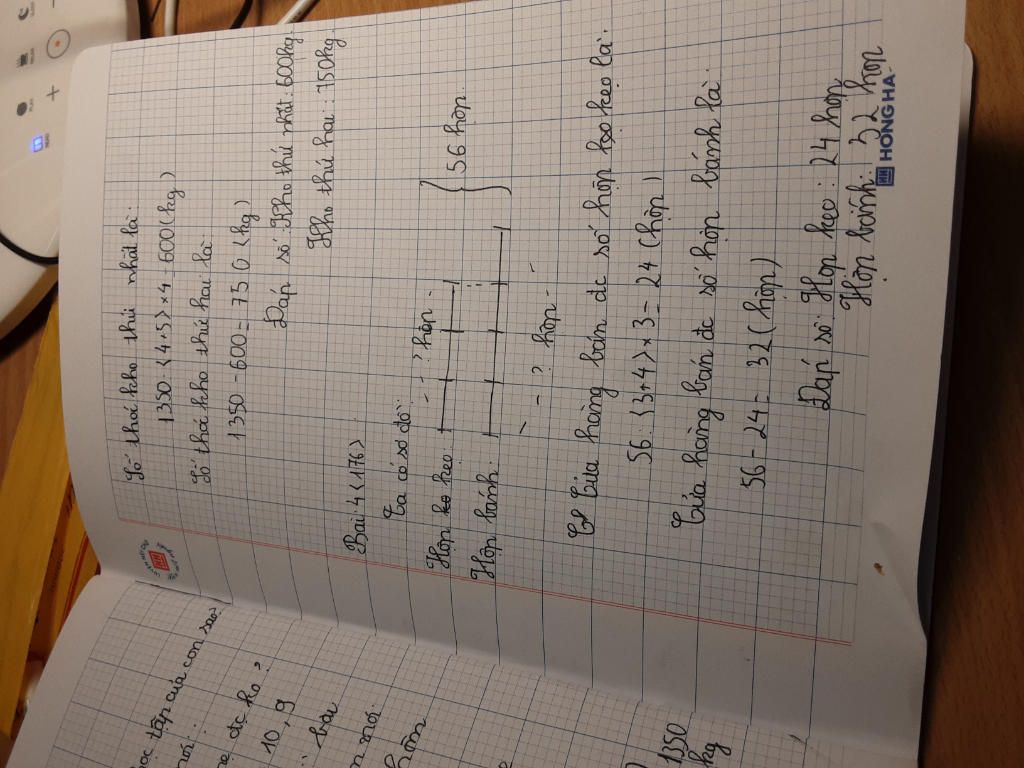 Số thóc kho thứ nhất là:
1350 : (4+5) x 4 = 600 (kg)
Số thóc kho thứ hai là:
1350 - 600 = 750 (kg)
Đáp số: Kho thứ nhất: 600kg
Kho thứ hai: 750kg
Bài 4 (176)
Ta có sơ đồ:
? hộp
Hộp kẹo:
56 hộp
Hộp bánh:
? hộp
Cửa hàng bán đc số hộp kẹo là:
56 : (3+4) x 3 = 24 (hộp)
Cửa hàng bán đc số hộp bánh là:
56 - 24 = 32 (hộp)
Đáp số: Hộp kẹo: 24 hộp
Hộp bánh: 32 hộp
HONG HA
tập của con sao?
đc ko?
10, 9
1350
kg